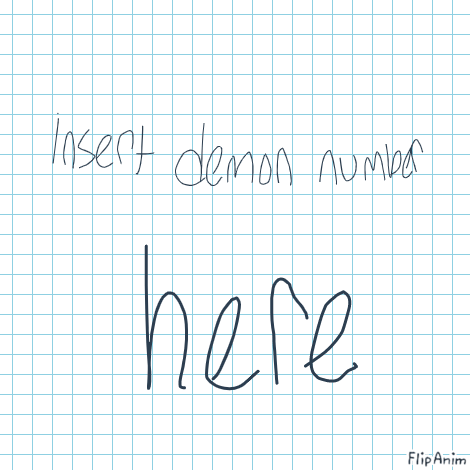 insert demon number
here
FlipAnim